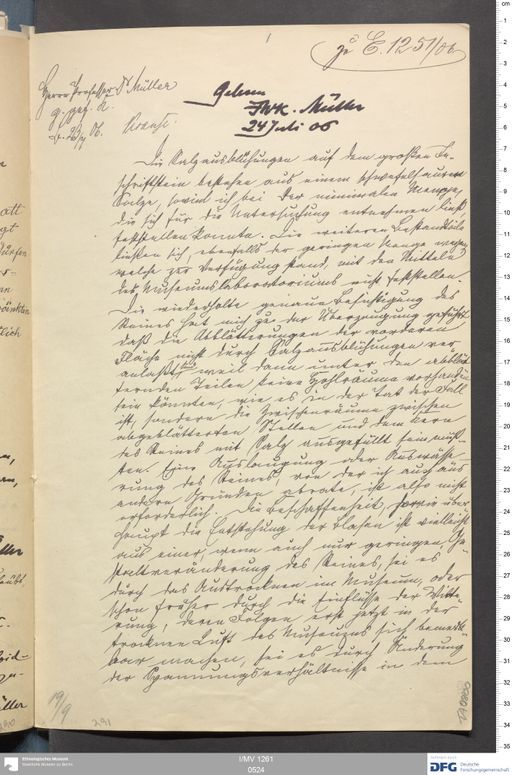 zu E. 1251/06
Herrn Professor Dr Müller
g. gef. K.
23/7 06.
Gelesen
FWK. Müller
24 Juli 06
Die Salzausblühungen auf dem großen Be-
schriftstein bestehen aus einem schwefelsauren
Salze, soviel ich bei der minimalen Menge,
die sich für die Untersuchung entnehmen ließ,
feststellen konnte. Die weiteren Bestandteile
ließen sich, ebenfalls der geringen Menge wegen,
welche zur Verfügung stand, mit den Mitteln
des Museumslaboratoriums nicht feststellen.
Die wiederholte genaue Besichtigung des
Steines hat mich zu der Überzeugung geführt,
daß die Abblätterungen der vorderen
Fläche nicht durch Salzausblühungen ver-
anlaßt sind, weil dann unter den abblät-
ternden Teilen keine Hohlräume vorhanden
sein könnten, wie es in der Tat der Fall
ist, sondern die Zwischenräume zwischen
abgeblätterten Stellen und dem Kern
des Steines mit Salz ausgefüllt sein müß-
ten. Eine Auslaugung oder Auswässe-
rung des Steines, von der ich auch aus
andern Gründen abrate, ist also nicht
erforderlich. Die Beschaffenheit, sowie über-
haupt die Entstehung der Blasen ist vielleicht
aus einer, wenn auch nur geringen, Ge-
staltveränderung des Steines, sei es
durch das Austrocknen im Museum, oder
schon früher durch die Einflüsse der Witte-
rung, deren Folgen erst jetzt in der
trocknen Luft des Museums sich bemerk-
bar machen, sei es durch Änderung
der Spannungsverhältnisse in dem
19/9
291
Ethnologisches Museum
Staatliche Museen zu Berlin
I/MV 1261
0524
DFG Deutsche
Forschungsgemeinschaft